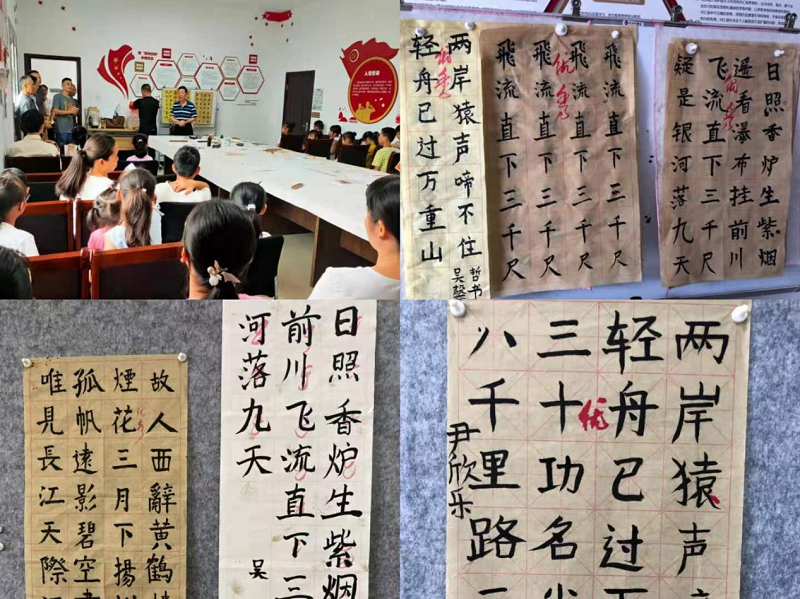 两岸猿声啼不住
轻舟已过万重山
飛流直下三千尺
飛流直下三千尺
飛流直下三千尺
飛流直下三千尺
优
日照香炉生紫烟
遥看瀑布挂前川
飞流直下三千尺
疑是银河落九天
故人西辭黄鹤
煙花三月下揚
孤帆遠影碧空
唯見長江天際
日照香炉生紫烟
前川飞流直下三
河落九天
吴
两岸猿声
轻舟已过
三十功名
八千里路
优
尹欣乐